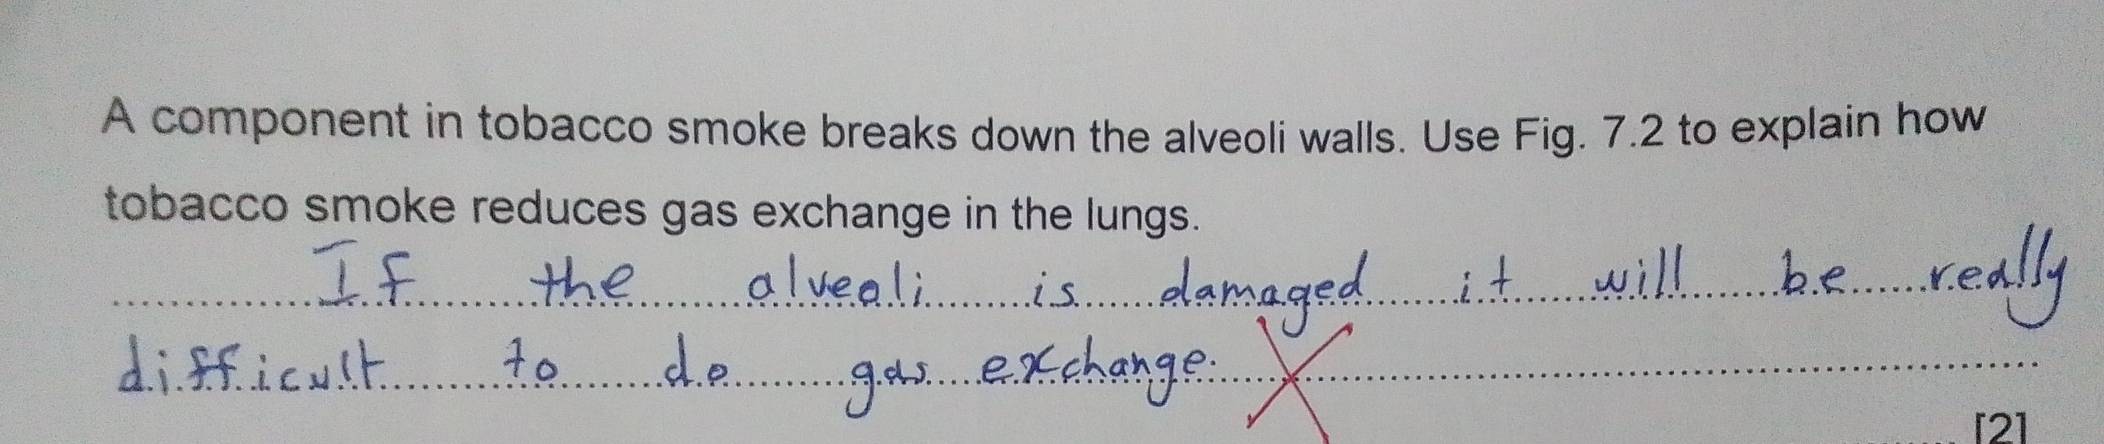 A component in tobacco smoke breaks down the alveoli walls. Use Fig. 7.2 to explain how
tobacco smoke reduces gas exchange in the lungs.
If the alveoli is damaged it will be really
difficult to do gas exchange.
[2]